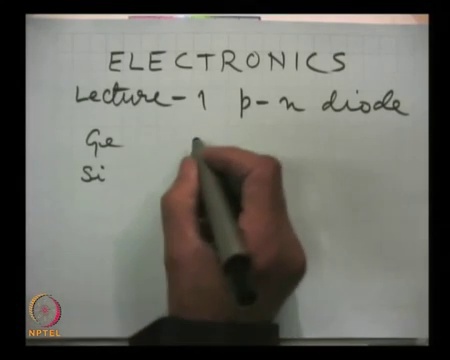 ELECTRONICS
Lecture - 1 p-n diode
Ge
Si
NPTEL